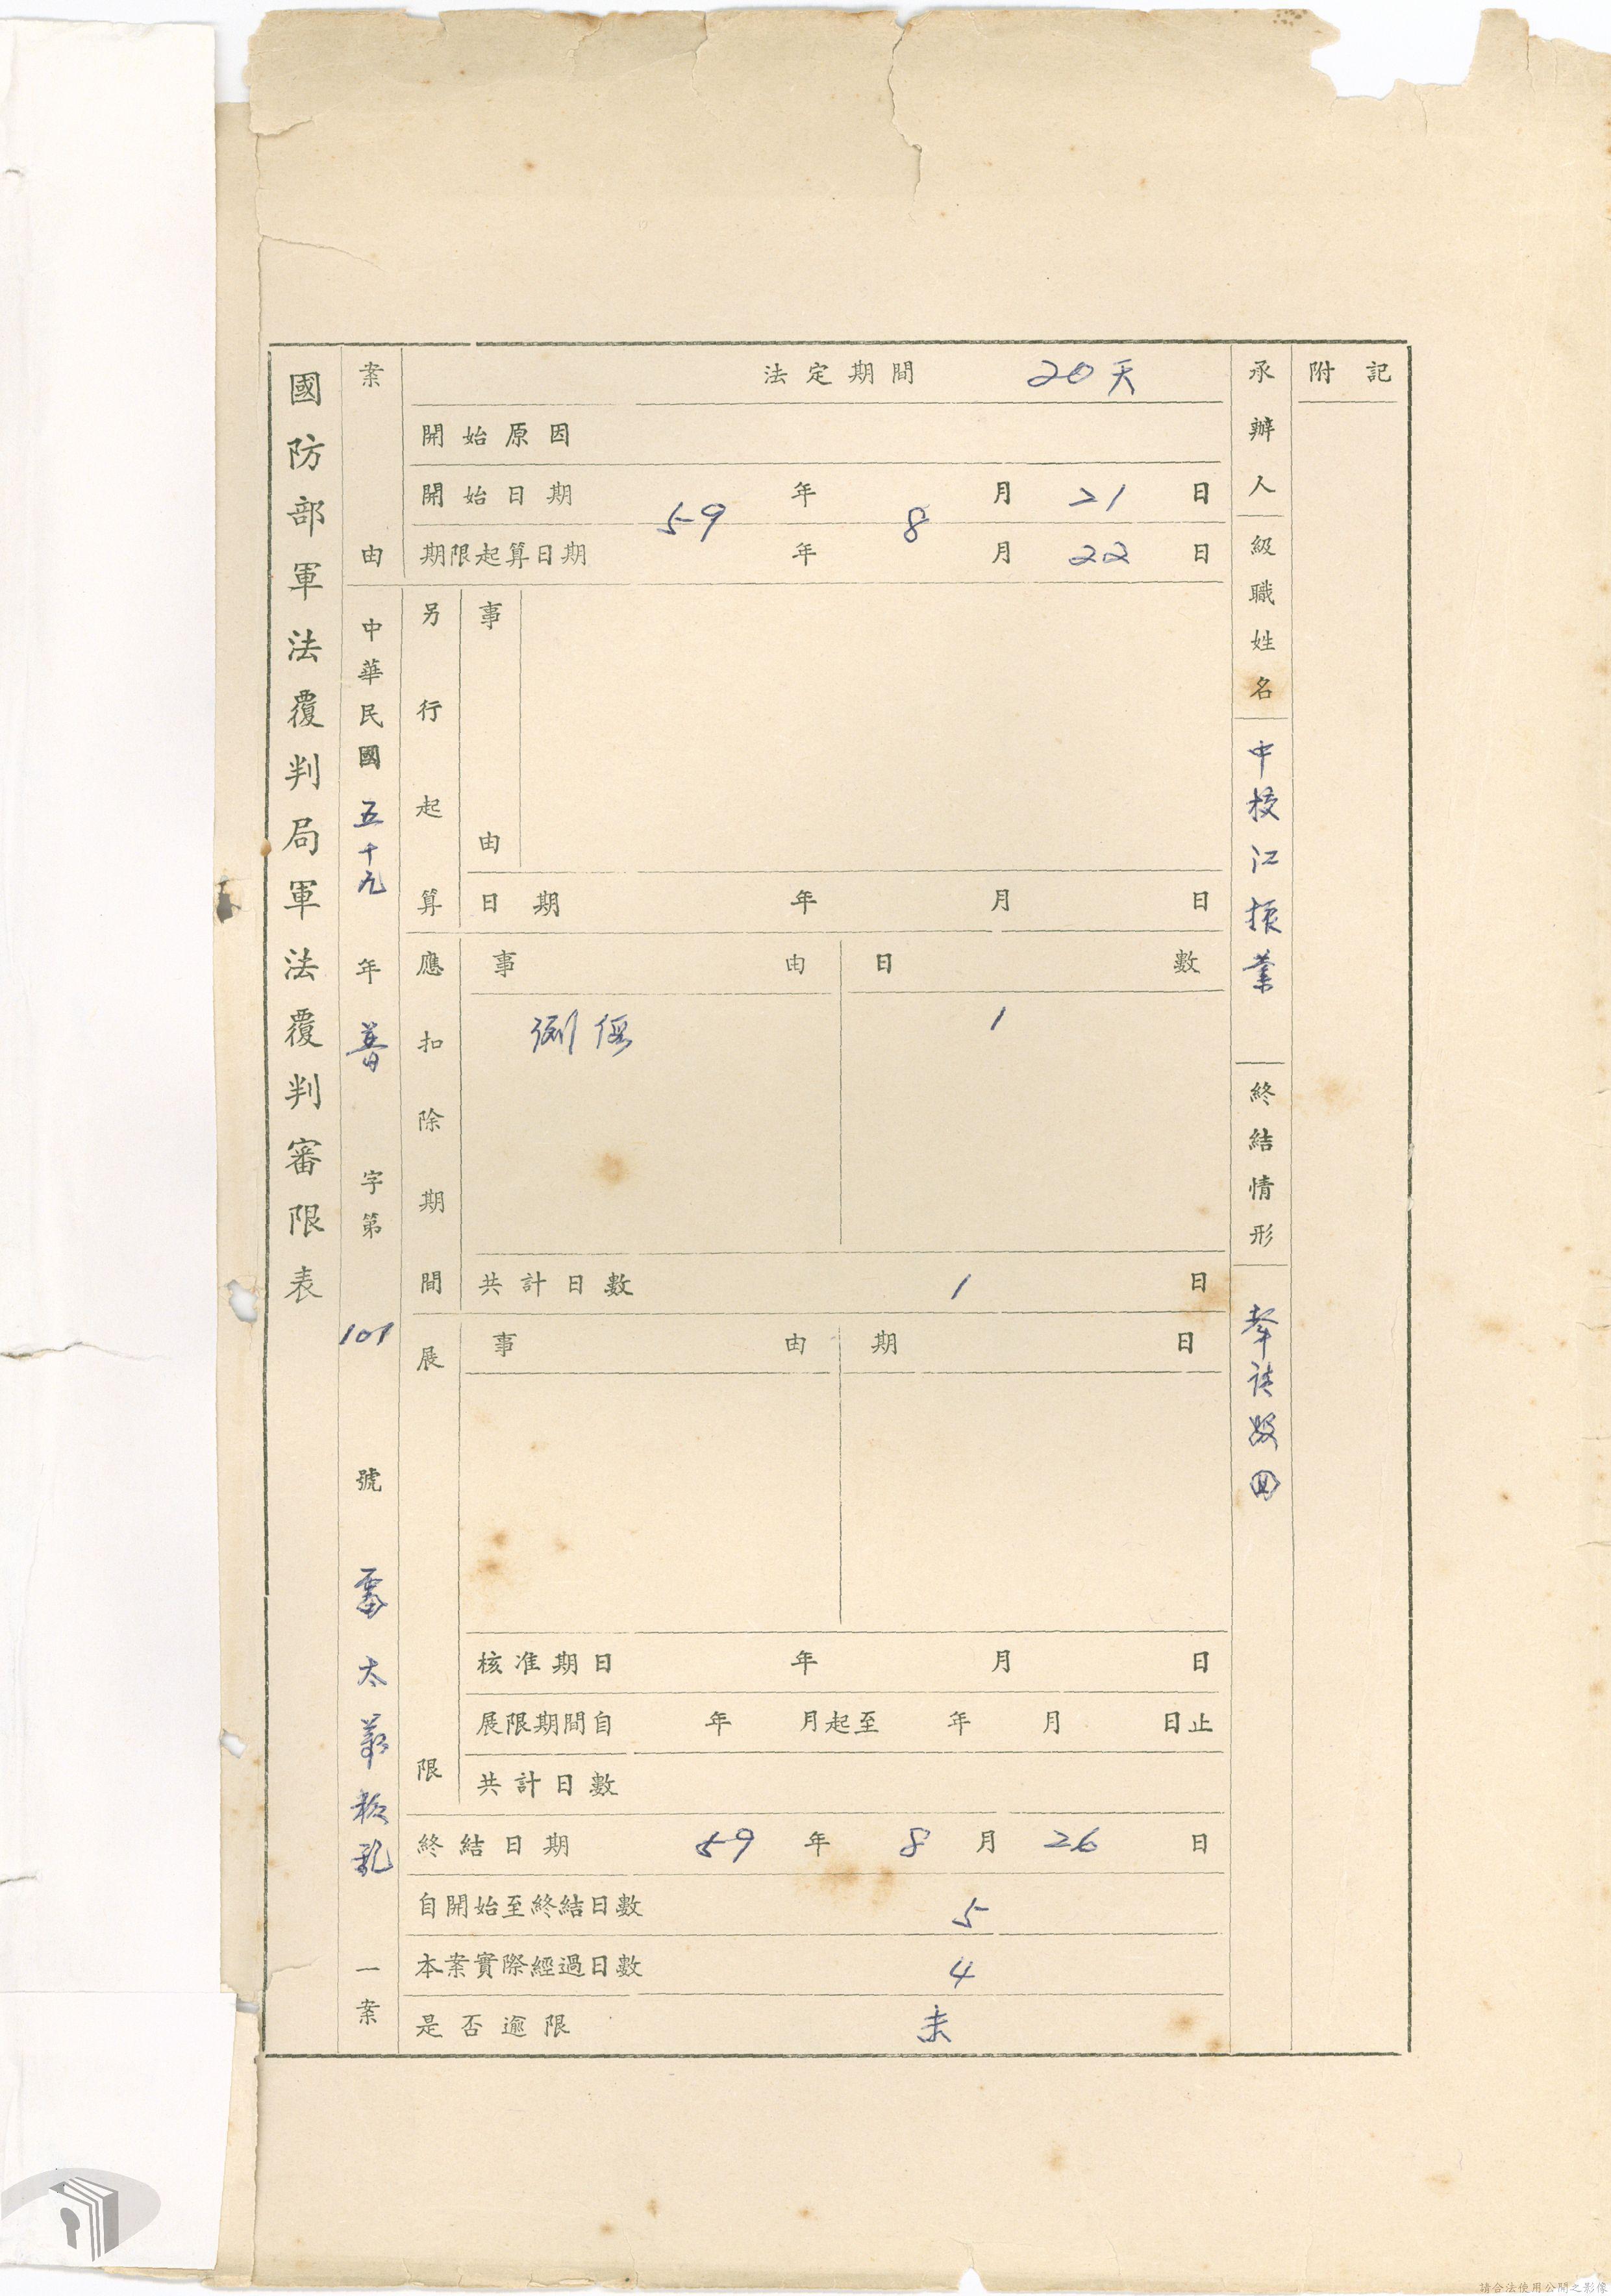 國防部軍法覆判局軍法覆判審限表
案由
中華民國五十九年普字第101號
雷太
一案
法定期間 20天
開始原因
開始日期 59年8月21日
期限起算日期 年 月22日
另行起算
事由
日期 年 月 日
應扣除期間
事由 日數
例假 1
共計日數 1 日
展限
事由 期日
核准期日 年 月 日
展限期間自 年 月起至 年 月 日止
共計日數
終結日期 59年8月26日
自開始至終結日數 5
本案實際經過日數 4
是否逾限 未
承辦人級職姓名 中校江振業
終結情形 聲請駁回
附記
請合法使用公開之影像